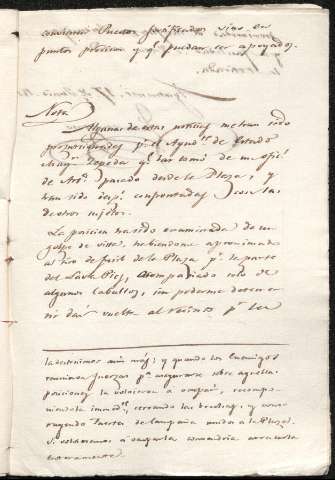 construir Puestos fortificados sino en
puntos precisos y qe puedan ser apoyados.
Nota
Algunas de estas noticias me han sido
proporcionadas pr el Ayudte de Estado
Mayor qe las tomó de un ofic
de Arta pasado desde la Plaza, y
han sido despo confrontadas con las
de otros sujetos.
La posicion ha sido examinada de un
golpe de vista, habiendome aproximado
al tiro de fusil de la Plaza pr la parte
del acompañado solo de
algunos caballos, sin poderme detener
ni dar vuelta al recinto pr ser
la detuvimos aun mas; y quando los Enemigos
reunieron fuerzas pa asegurarse sobre aquella
posicion, la volvieron a ocupar, recompo
niendola inmedte, cerrando las brechas, y cons
truyendo fuertes de Campaña unidos a la Plaza.
Si volvieramos a ocuparla convendria arrasarla
enteramente.